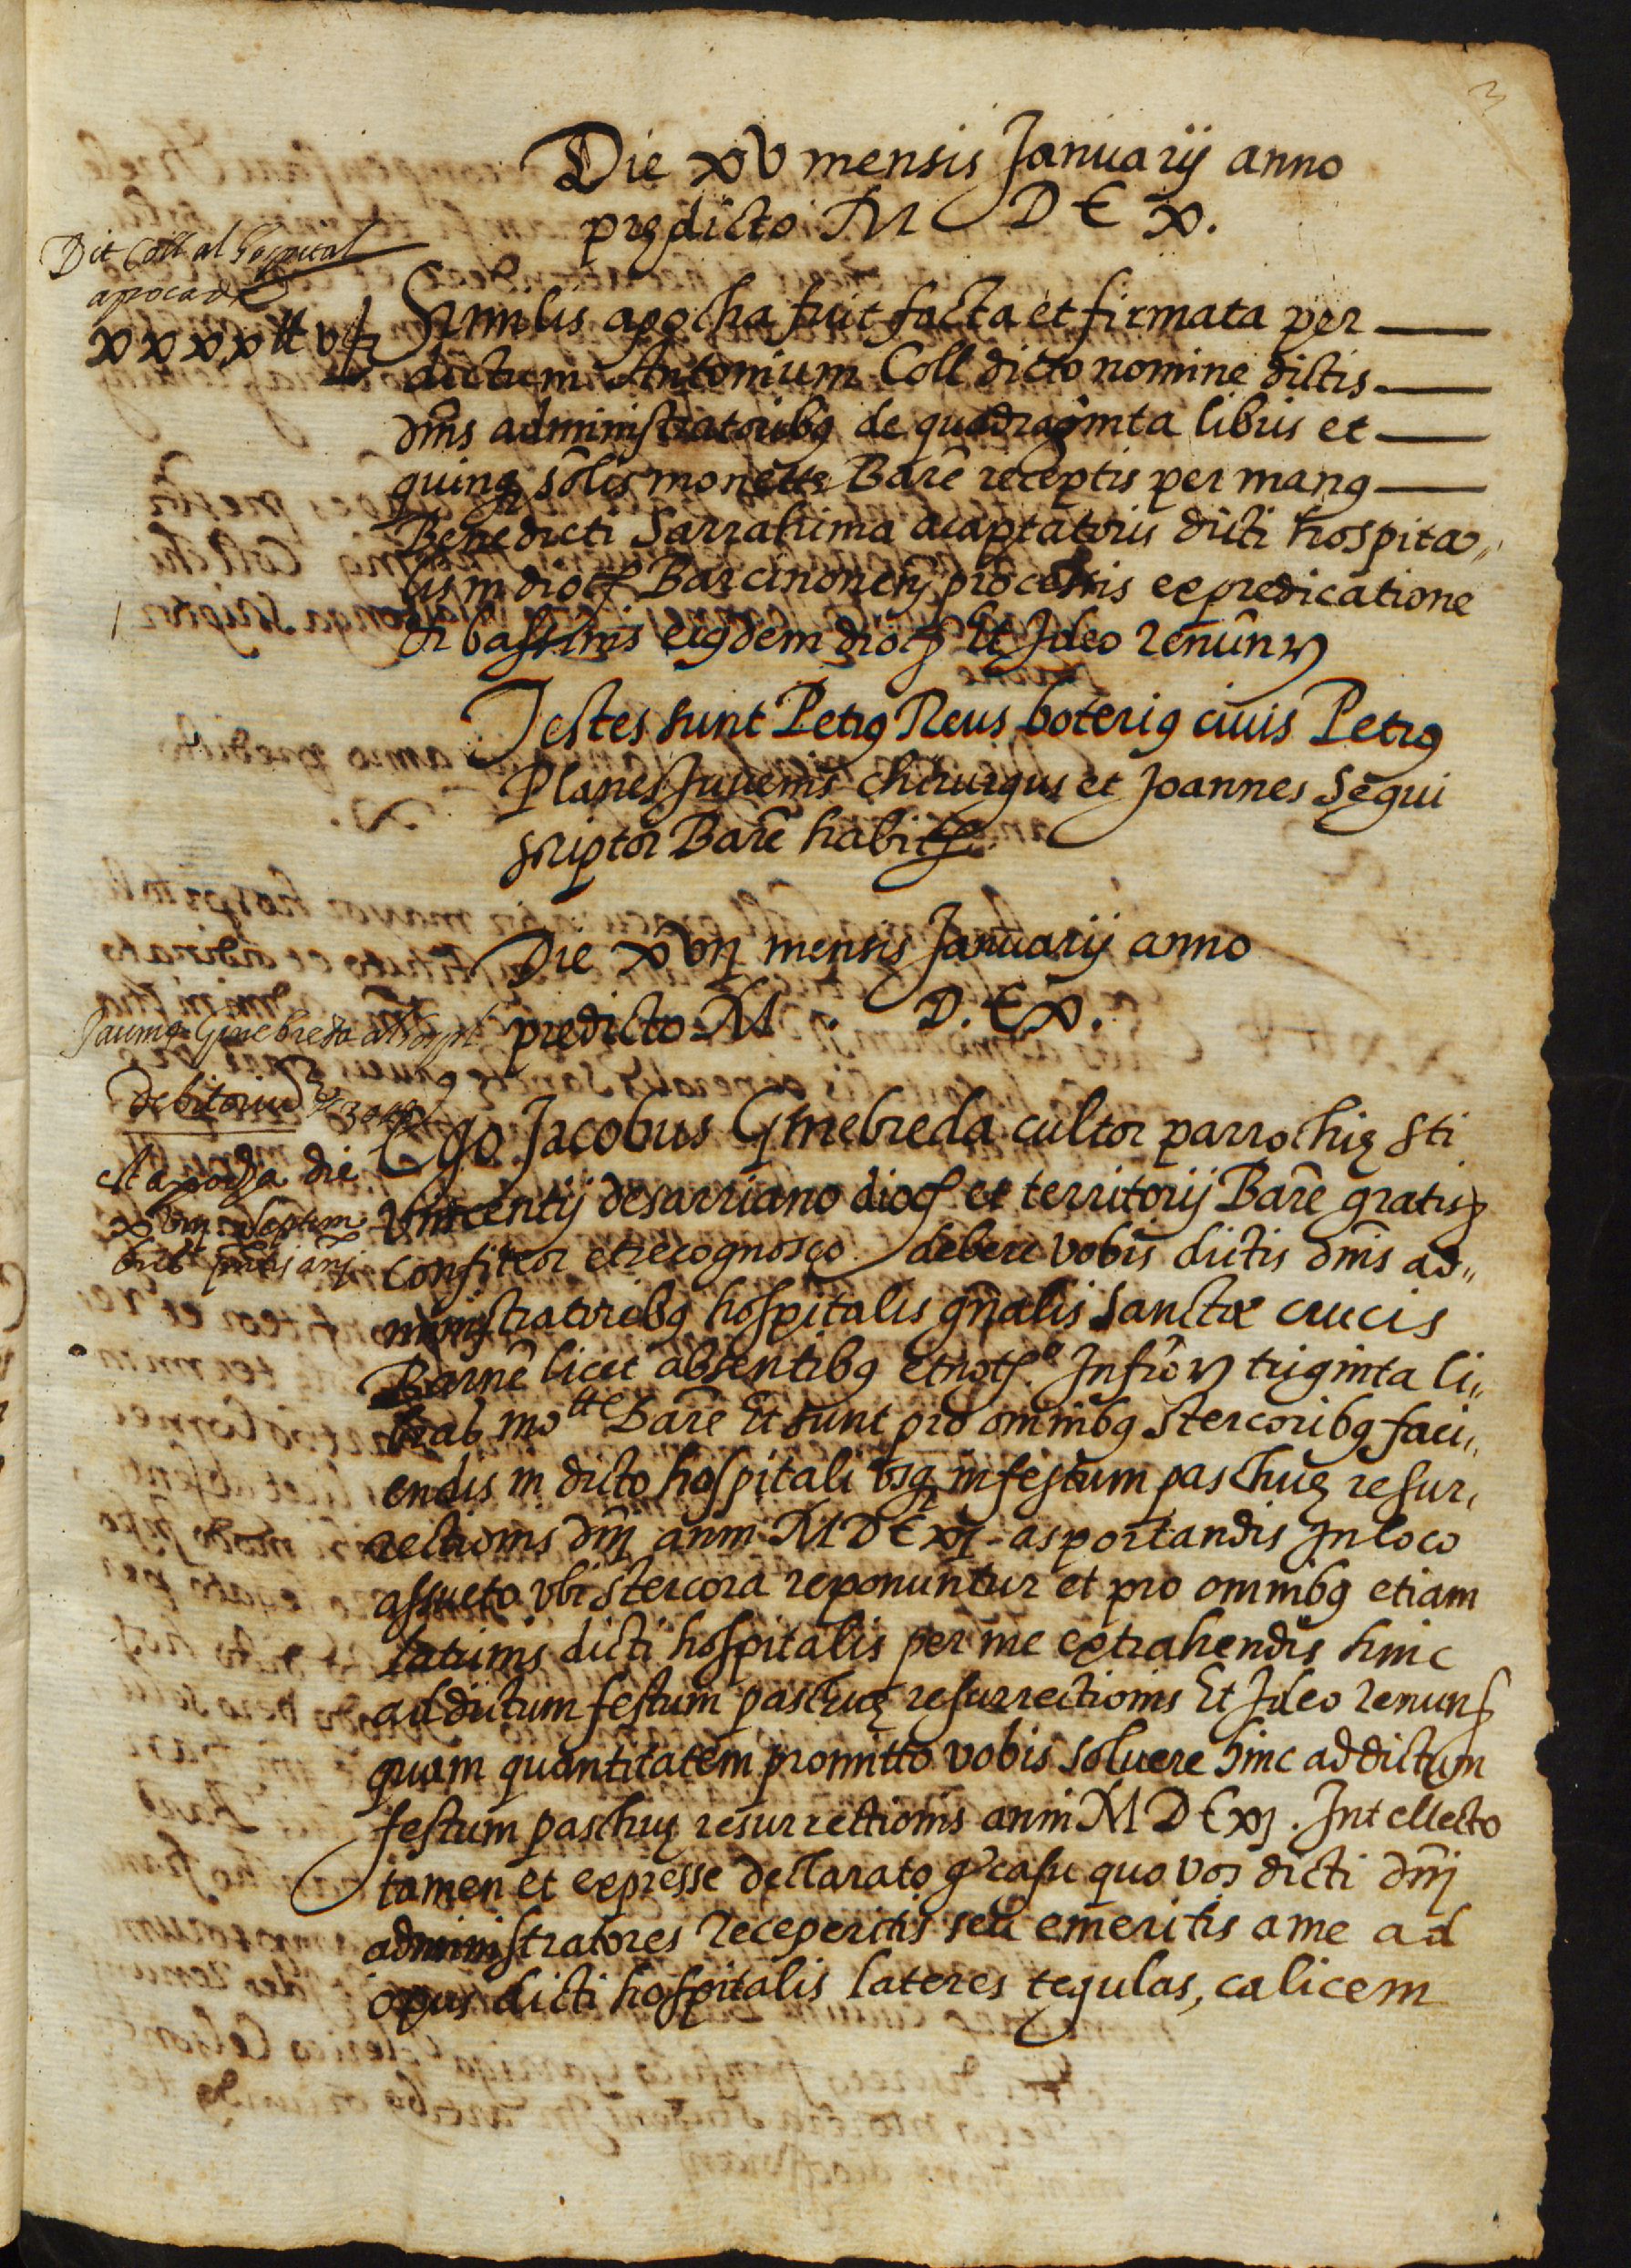 3
Die xv mensis Januarij anno
prędicto M D C x.
Dit Coll al hospital
apoca de
xxxx ll v s
Similis apocha fuit facta et firmata per
dictum Antonium Coll dicto nomine dictis
dn̄is administratoribꝯ de quadraginta libris et
quinqꝫ solis monete Barc̄ receptis per manꝯ
Benedicti Sarrahima acaptatoris dicti hospita„
lis in dioc̄ Barcinonen̄ processis ex predicatione
et bassinis eiꝯdem dioc̄ Et Ideo renūn
Testes sunt Petrꝯ Reus boteriꝯ civis Petrꝯ
Planes Juvenis chirurgus et Joannes Segui
scriptor Barc̄ habit
Die xvij mensis Januarij anno
predicto M. D. C x.
Jaume Ginebreda al hospl
debitoriu de 30 ll
Ego Jacobus Ginebreda cultor parrochię Sti
Est apocha die
xviij septem
bris pntis anj
Vincentij de sarriano dioc̄ et territorij Barc̄ gratis
confiteor et recognosco debere vobis dictis dn̄is ad„
ministratoribꝯ hospitalis gn̄alis Sanctæ crucis
Barn̄e licet absentibꝯ et not Infro triginta li„
bras mo Barc̄ Et sunt pro omnibꝯ stercoribꝯ faci„
endis in dicto hospitali vsqꝫ in festum paschuę resur„
rectionis dn̄j anni M D C xj asportandis In loco
assueto vbi stercora reponuntur et pro omnibꝯ etiam
latrinis dicti hospitalis per me extrahendis hinc
ad dictum festum paschuę resurrectionis Et Ideo renun
quam quantitatem promitto vobis soluere hinc ad dictum
festum paschuę resurrectionis anni M D C xj. Intellecto
tamen et expresse declarato q casu quo vos dicti dn̄j
administratores receperitis seu emeritis a me ad
opus dicti hospitalis lateres tegulas, calicem